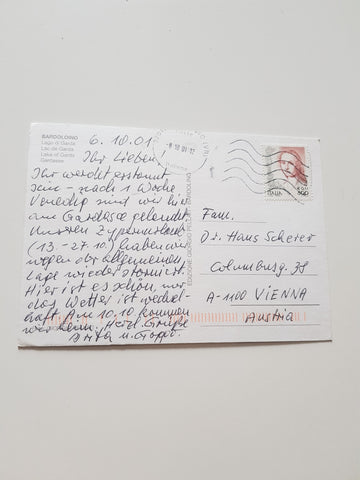 BARDOLINO
Lago di Garda
Lac de Garda
Lake of Garda
Gardasee
6.10.01
Ihr Lieben!
Ihr werdet erstaunt
sein - nach 1 Woche
Venedig sind wir hier
am Gardasee gelandet
Unseren Zypernurlaub
(13.-27.10.) haben wir
wegen der allgemeinen
Lage wieder storniert.
Hier ist es schön, nur
das Wetter ist wechsel-
haft. Am 10.10. kommen
wir heim. Herzl. Grüße
u.
EDIZIONE GIORGIO
BARDOLINO
ITALIA
800
Fam.
Dr. Hans Scherer
Columbusg. 38
A-1100 VIENNA
Austria